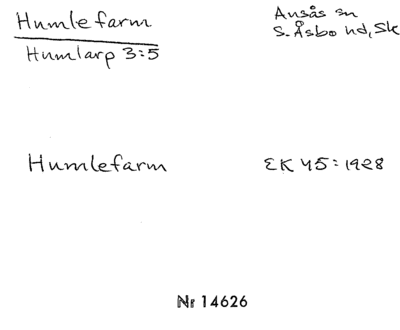 Humlefarm
Humlarp 3:5
Ausås sn
S. Åsbo hd, Sk
Humlefarm
EK 45:1928
Nr 14626